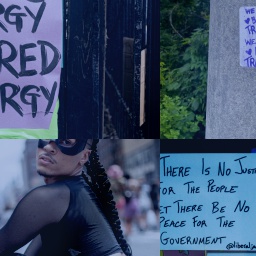 RGY
RED
RGY
WE
TR
WE
TR
THERE IS NO JUST
FOR THE PEOPLE
ET THERE BE NO
PEACE FOR THE
GOVERNMENT